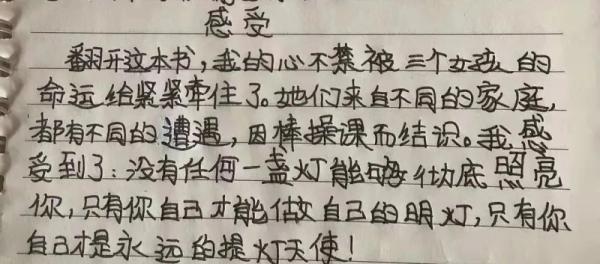 感受
翻开这本书，我的心不禁被三个女孩的
命运给紧紧牵住了。她们来自不同的家庭，
都有不同的遭遇，因棒操课而结识。我感
受到了：没有任何一盏灯能够彻底照亮
你，只有你自己才能做自己的明灯，只有你
自己才是永远的提灯天使！